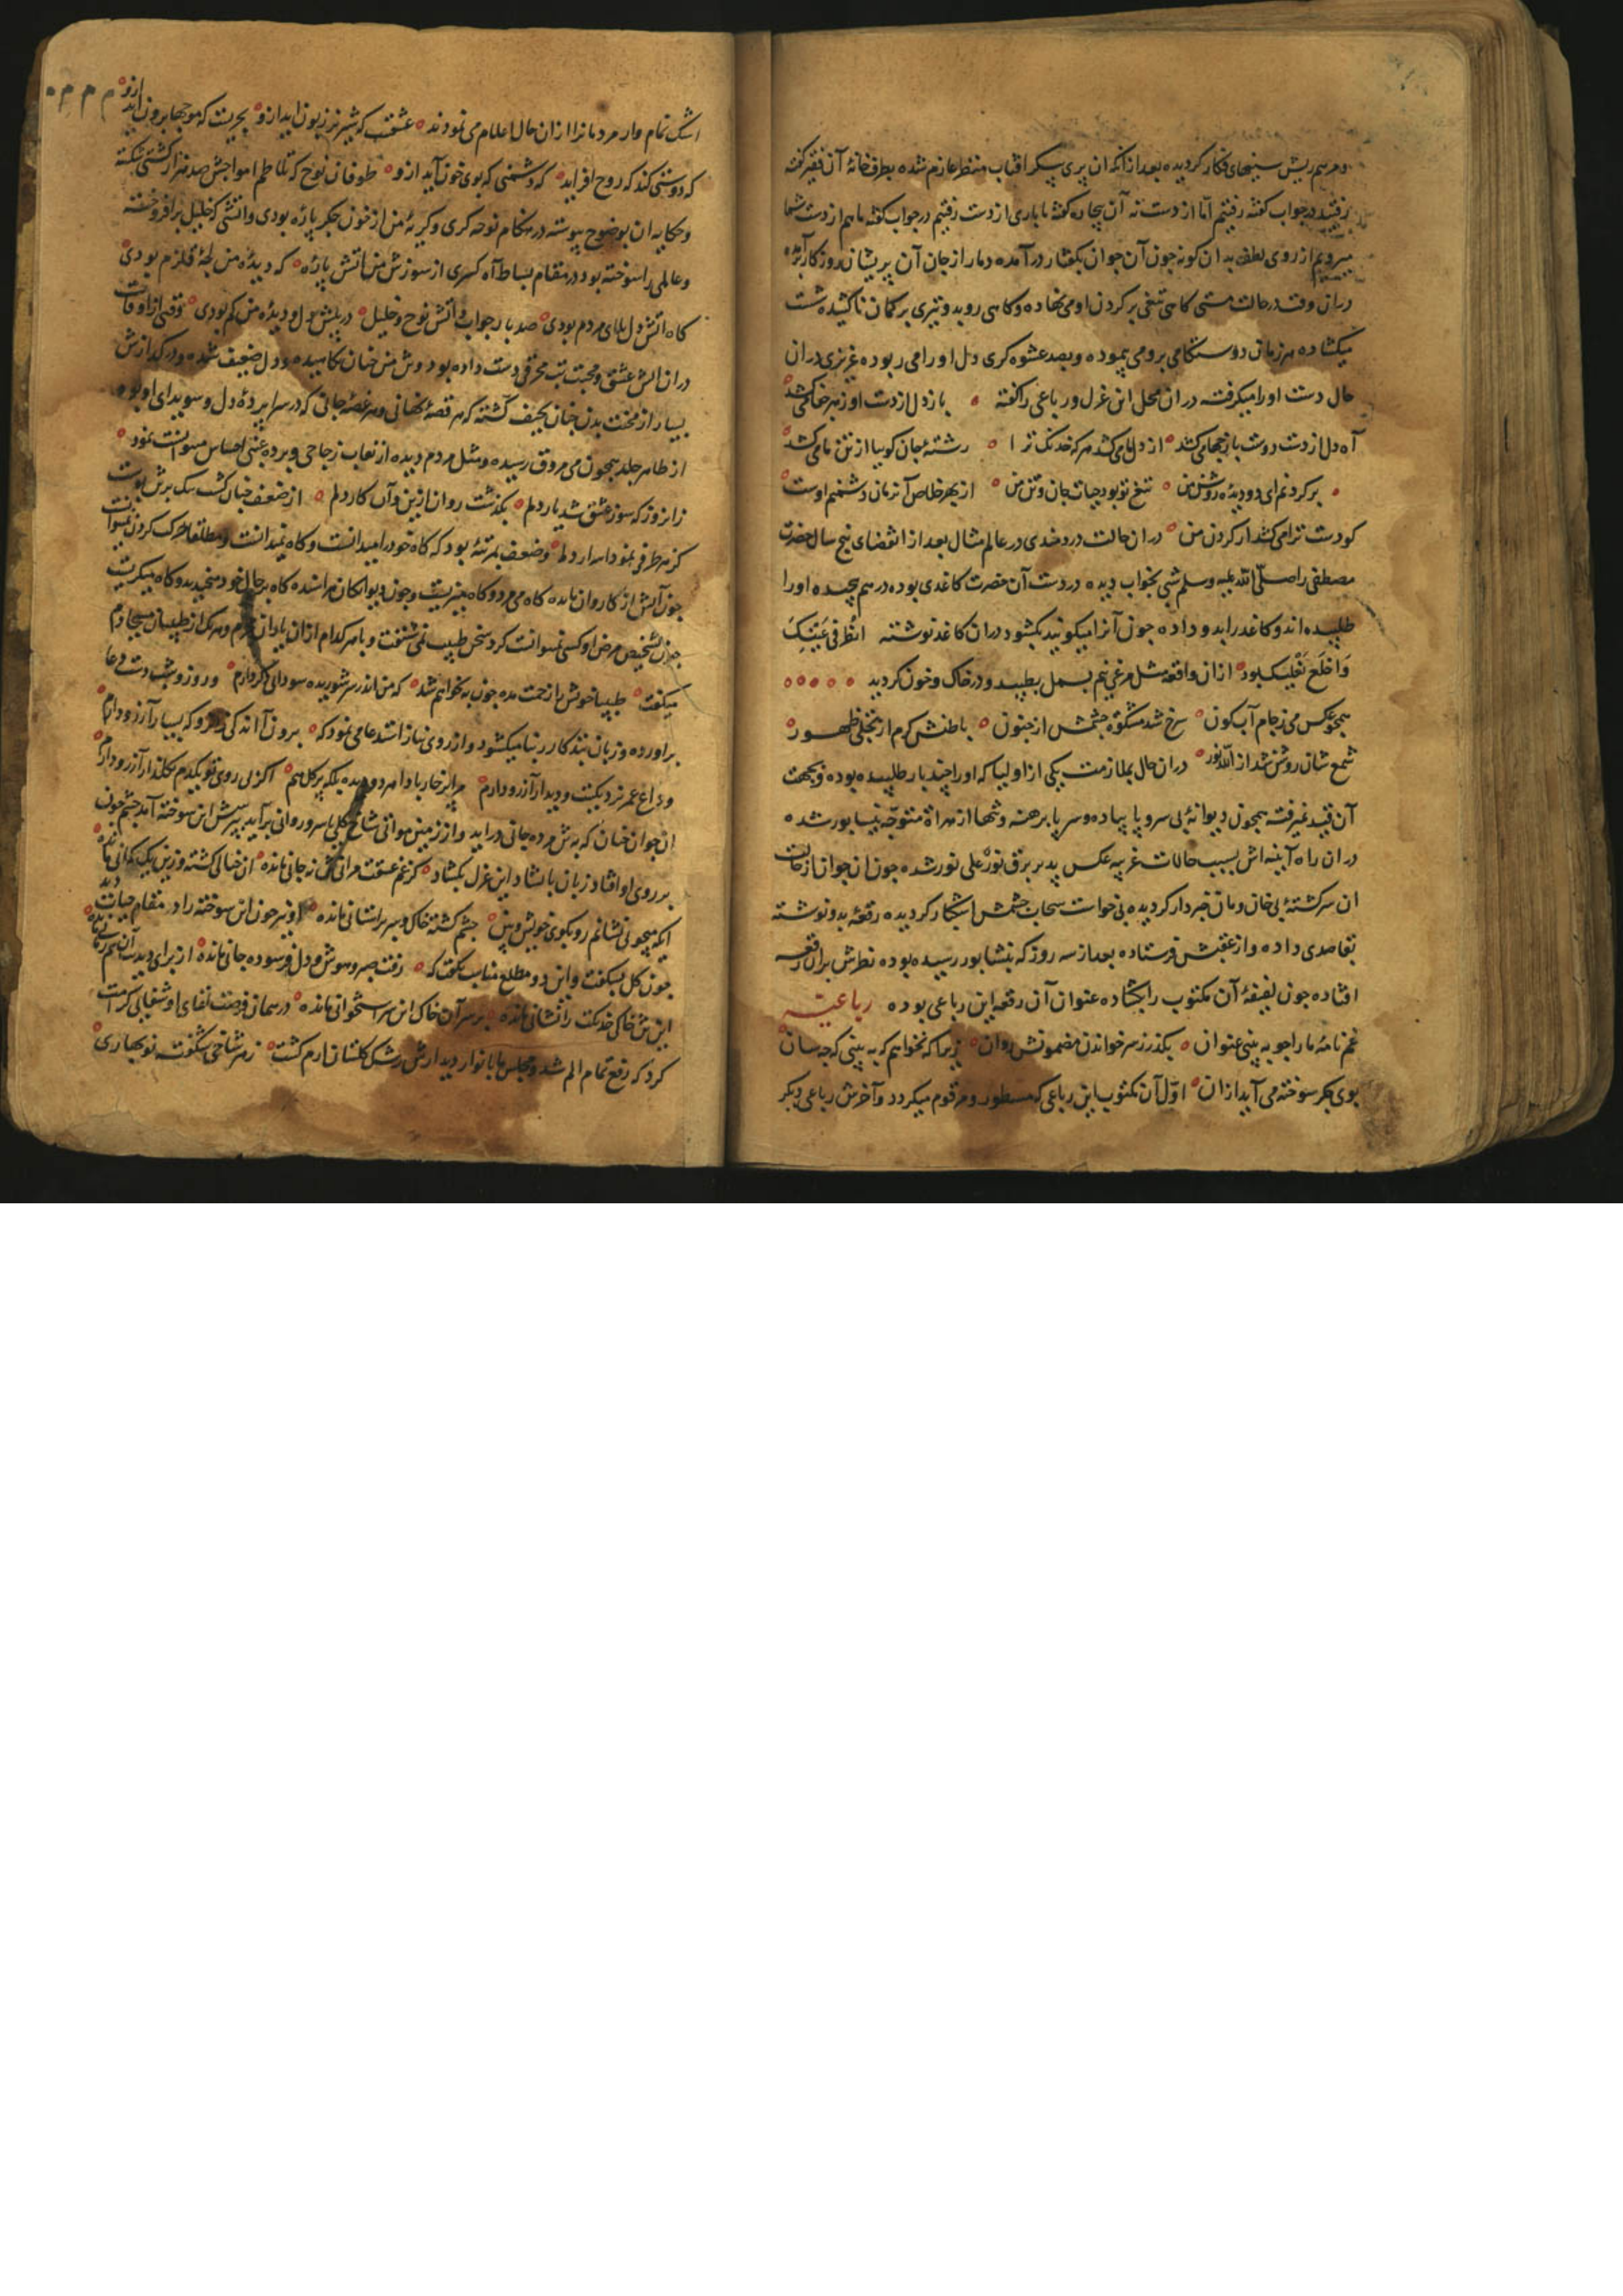 ومرهم ریش سینهای فکار کردیده بعد از آنکه ان پری پیکر افتاب منظر عازم شده بطرف خانهٔ آن فقیر کفته
رفتید در جواب کفته رفتیم امّا از دست نه آن بیچاره کفته ما باری از دست رفتیم در جواب کفته ما هم از دست شما
میرویم از روی لطف بدان کونه چون آن جوان بکفتار در آمده دمار از جان آن پریشان روزکار برآورده
دران وقت در حالت مستی کاهی تیغی بر کردن او می نهاده و کاهی روبدو تیری بر کمان ناکشیده شست
میکشاده هر زمان دوستکامی برو می پیموده و بصد عشوه کری دل او را می ربوده عزیزی دران
حال دست او را میکرفته دران محل این غزل و رباعی را کفته ٥ باز دل از دست او زهر
آه دل از دست دوست باز چها می کشد ٥ از دلها می کشد هر که خدنک ترا ٥ رشتهٔ جان کوییا از تن ما می کشد
٥ بر کردنم ای دو دیدهٔ روشن من ٥ تیغ تو بود حیات جان و تن من ٥ از بهر خلاص آنزمان دشمنم اوست
کو دست ترا می کشد از کردن من ٥ دران حالت دردمندی در عالم مثال بعد از انقضای پنج سال حضرت
مصطفی را صلّی اللّه علیه وسلم شبی بخواب دیده در دست آن حضرت کاغدی بوده در هم پیچیده او را
طلبیده اند و کاغد را بدو داده چون آنرا میکوئید بکشود دران کاغد نوشته انظُر فی عَیْنَیکَ
وَاخلَع نَعْلَیکَ بود ٥ ازان واقعه مثل مرغ نیم بسمل بطپید و در خاک و خون کردید ٥ ٥ ٥ ٥ ٥
همچو عکس می ز جام آب کون ٥ سرخ شد مشکوة چشمش از جنون ٥ باطنش کرم از تجلّی ظهور ٥
شمع شان روشن شد از اللّه نور ٥ دران حال بملازمت یکی از اولیا که او را چند بار طلبیده بوده و بجهت
آن قید نمیرفته همچون دیوانهٔ بی سر و پا پیاده و سر پا برهنه و تنها از هراة متوجّه نیشابور شده
دران راه آیینه اش بسبب حالات غریبه عکس پذیر برق نورٌ علی نور شده چون ان جوان از حالت
ان سرکشتهٔ بی خان و مان خبردار کردیده بی خواست سحاب چشمش اشکبار کردیده رقعهٔ بدو نوشته
بقاصدی داده و از عقبش فرستاده بعد از سه روز که بنیشابور رسیده بوده نظرش بران رقعه
افتاده چون لفیفهٔ آن مکتوب را بکشاده عنوان آن رقعه این رباعی بوده رباعیّه
غم نامهٔ ما را چو ببینی عنوان ٥ بکذر ز سر خواندن مضمونش روان ٥ زیرا که نخواهم که ببینی که چه سان
بوی جکر سوخته می آید ازان ٥ اوّل آن مکتوب این رباعی که مسطور و مرقوم میکردد و آخرش رباعی دیکر
اشک تمام وار مردمانرا ازان حال اعلام می نمودند ٥ عشقت که شیر نر زبون اید ازو ٥ بحریست که موجها برون اید ازو ٥
که دوستی کند که روح افزاید ٥ که دشمنی که بوی خون آید ازو ٥ طوفان نوح که تلاطم امواجش صد هزار کشتی شکسته
وحکایه ان بوضوح پیوسته در هنکام نوحه کری و کریهٔ من از خون جکر پارهٔ بودی و اتشی که خلیل برافروخته
وعالمی را سوخته بود در مقام بساط آه کستری از سوزش من اتش پارهٔ ٥ که دیدهٔ من لجهٔ قلزم بودی
کاه اتش دل بلای مردم بودی ٥ صد بار جواب و آتش نوح و خلیل ٥ در پیش دل و دیدهٔ من کم بودی ٥ وقتی از اوقات
دران اتش عشق و محبت تب محرقی دست داده بود و تن من چنان کاهیده و دل ضعیف شده و در کدازش
بسیار از محنت بدن چنان نحیف کشته که هر قصهٔ نهانی و هر غصهٔ جانی که در سراپردهٔ دل و سویدای او بوده
از ظاهر جلد همچون می مروّق رسیده و مثل مردم دیده از نقاب زجاجی و پردهٔ عنبی احساس میتوانست نمود ٥
زانروز که سوز عشق شد یار دلم ٥ بکذشت روان ازین و آن کار دلم ٥ از ضعف چنان کشت تنک برتن پوست
کز هر طرفی نمود اسرار دلم ٥ وضعف بمرتبهٔ بود که کاه خود را میدانست و کاه نمیدانست و مطلقا حرکت کردن نمیتوانست
چون آتش از کاروان مانده کاه می مرد و کاه میزیست و چون دیوانکان درمانده کاه بر حال خود میخندید و کاه میکریست
چون تشخیص مرض او کسی نمیتوانست کرد سخن طبیب نمی شنفت و با هر کدام ازان یاران محرم و هر یک از طبیبان مسیحا دم
میکفت ٥ طبیبا خویش را زحمت مده چون به نخواهم شد ٥ که من اندر سر شوریده سودای دکر دارم ٥ و روز و شب دست دعا
براورده و زبان بذکار ربنا میکشود و از روی نیاز استدعا می نمود که ٥ برون آ اندکی زان رو که بسیار آرزو دارم ٥
وداع عمر نزدیکست و دیدار آرزو دارم ٥ برابر خار بادا مر دو دیده بلکه پر کل هم ٥ اکر بی روی تو یکدم کلذار آرزو دارم ٥
ان جوان چنان که به تن مرده جانی دراید و از زمین مواتی شاخ کلی یا سرو روانی براید بپرسش این سوخته آمد چشم خون
بر روی او افتاد زبان بانشاد این غزل بکشاد ٥ کز غم عشقت مرا نی تن نه جانی مانده ٥ ان خیالی کشته و زین یک کمانی مانده ٥
ایکه میجویی نشانم رو بکوی خویش و بین ٥ چشم کشته خاک و سر بر استانی مانده ٥ او نیز چون این سوخته را در مقام حیات دید
چون کل بشکفت و این دو مطلع مناسب بکفت که ٥ رفت صبر و هوش و دل فرسوده جانی مانده ٥ از برای دیدنت آن هم زمانی مانده ٥
این تن خاکی خدنکت را نشانی مانده ٥ بر سر آن خاک این سر استخوانی مانده ٥ در همان فرصت لقای او شفایی کرامت
کرد که رفع تمام الم شد و مجلس ما بانوار دیدارش رشک کلستان ارم کشت ٥ ز هر شاخی شکفته نوبهاری ٥